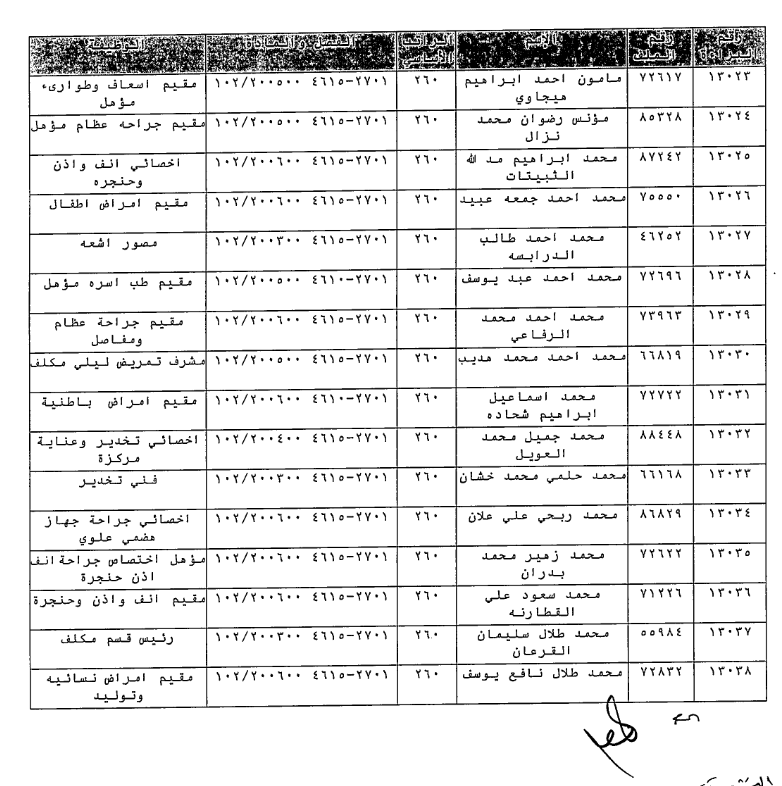 رقم البيان رقم الملف الاسم الراتب الأساسي الفصل والمادة الوظيفة
١٣٠٢٣ ٧٢٦١٧ مامون احمد ابراهيم ٢٦٠ ٢٧٠١-٤٦١٥ ١٠٢/٢٠٠٥٠٠ مقيم اسعاف وطوارىء
هيجاوي مؤهل
١٣٠٢٤ ٨٥٣٢٨ مؤنس رضوان محمد ٢٦٠ ٢٧٠١-٤٦١٥ ١٠٢/٢٠٠٥٠٠ مقيم جراحه عظام مؤهل
نزال
١٣٠٢٥ ٨٧٢٤٢ محمد ابراهيم مد الله ٢٦٠ ٢٧٠١-٤٦١٥ ١٠٢/٢٠٠٦٠٠ اخصائي انف واذن
الثبيتات وحنجره
١٣٠٢٦ ٧٥٥٥٠ محمد احمد جمعه عبيد ٢٦٠ ٢٧٠١-٤٦١٥ ١٠٢/٢٠٠٦٠٠ مقيم امراض اطفال
١٣٠٢٧ ٤٦٢٥٢ محمد احمد طالب ٢٦٠ ٢٧٠١-٤٦١٥ ١٠٢/٢٠٠٣٠٠ مصور اشعه
الدرابسه
١٣٠٢٨ ٧٢٦٩٦ محمد احمد عبد يوسف ٢٦٠ ٢٧٠١-٤٦١٠ ١٠٢/٢٠٠٥٠٠ مقيم طب اسره مؤهل
١٣٠٢٩ ٧٣٩٦٣ محمد احمد محمد ٢٦٠ ٢٧٠١-٤٦١٥ ١٠٢/٢٠٠٦٠٠ مقيم جراحة عظام
الرفاعي ومفاصل
١٣٠٣٠ ٦٦٨١٩ محمد احمد محمد هديب ٢٦٠ ٢٧٠١-٤٦١٥ ١٠٢/٢٠٠٥٠٠ مشرف تمريض ليلي مكلف
١٣٠٣١ ٧٢٧٢٢ محمد اسماعيل ٢٦٠ ٢٧٠١-٤٦١٠ ١٠٢/٢٠٠٦٠٠ مقيم امراض باطنية
ابراهيم شحاده
١٣٠٣٢ ٨٨٤٤٨ محمد جميل محمد ٢٦٠ ٢٧٠١-٤٦١٥ ١٠٢/٢٠٠٤٠٠ اخصائي تخدير وعناية
العويل مركزة
١٣٠٣٣ ٦٦١٦٨ محمد حلمي محمد خشان ٢٦٠ ٢٧٠١-٤٦١٥ ١٠٢/٢٠٠٣٠٠ فني تخدير
١٣٠٣٤ ٨٦٨٢٩ محمد ربحي علي علان ٢٦٠ ٢٧٠١-٤٦١٥ ١٠٢/٢٠٠٦٠٠ اخصائي جراحة جهاز
هضمي علوي
١٣٠٣٥ ٧٢٦٢٢ محمد زهير محمد ٢٦٠ ٢٧٠١-٤٦١٥ ١٠٢/٢٠٠٦٠٠ مؤهل اختصاص جراحة انف
بدران اذن حنجرة
١٣٠٣٦ ٧١٢٢٦ محمد سعود علي ٢٦٠ ٢٧٠١-٤٦١٥ ١٠٢/٢٠٠٦٠٠ مقيم انف واذن وحنجرة
القطارنه
١٣٠٣٧ ٥٥٩٨٤ محمد طلال سليمان ٢٦٠ ٢٧٠١-٤٦١٥ ١٠٢/٢٠٠٣٠٠ رئيس قسم مكلف
القرعان
١٣٠٣٨ ٧٢٨٣٢ محمد طلال نافع يوسف ٢٦٠ ٢٧٠١-٤٦١٥ ١٠٢/٢٠٠٦٠٠ مقيم امراض نسائيه
وتوليد